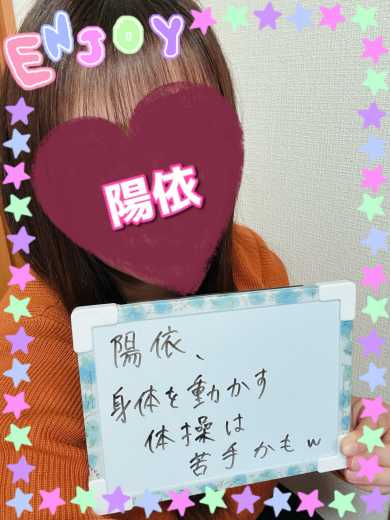 ENJOY
陽依
陽依、
身体を動かす
体操は
苦手かもw